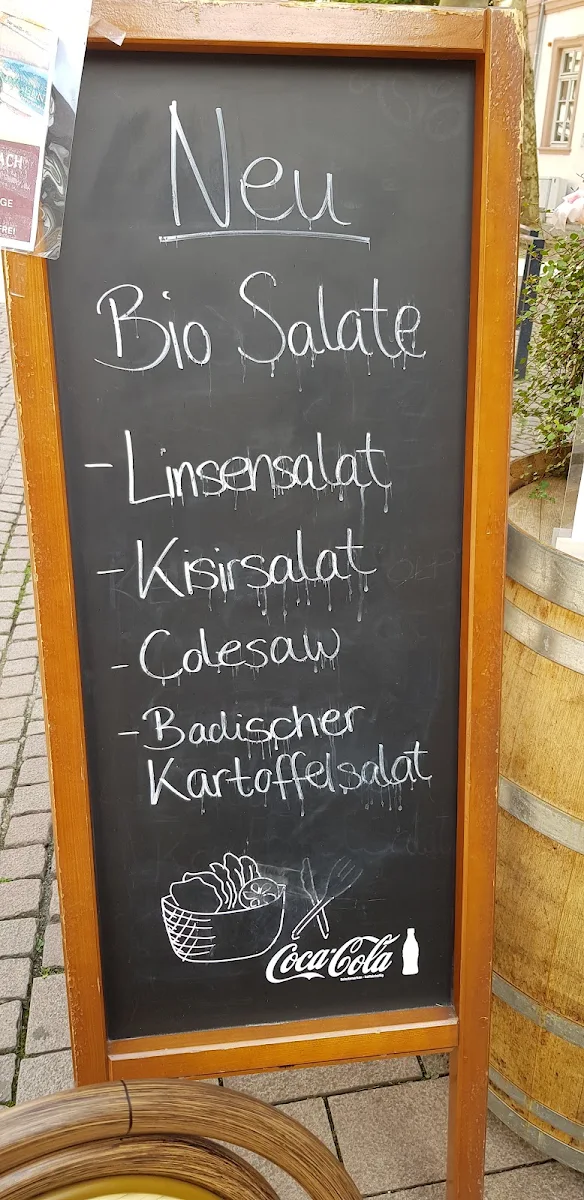 ACH
GE
FREI
Neu
Bio Salate
- Linsensalat
- Kisirsalat
- Colesaw
- Badischer
Kartoffelsalat
Coca-Cola